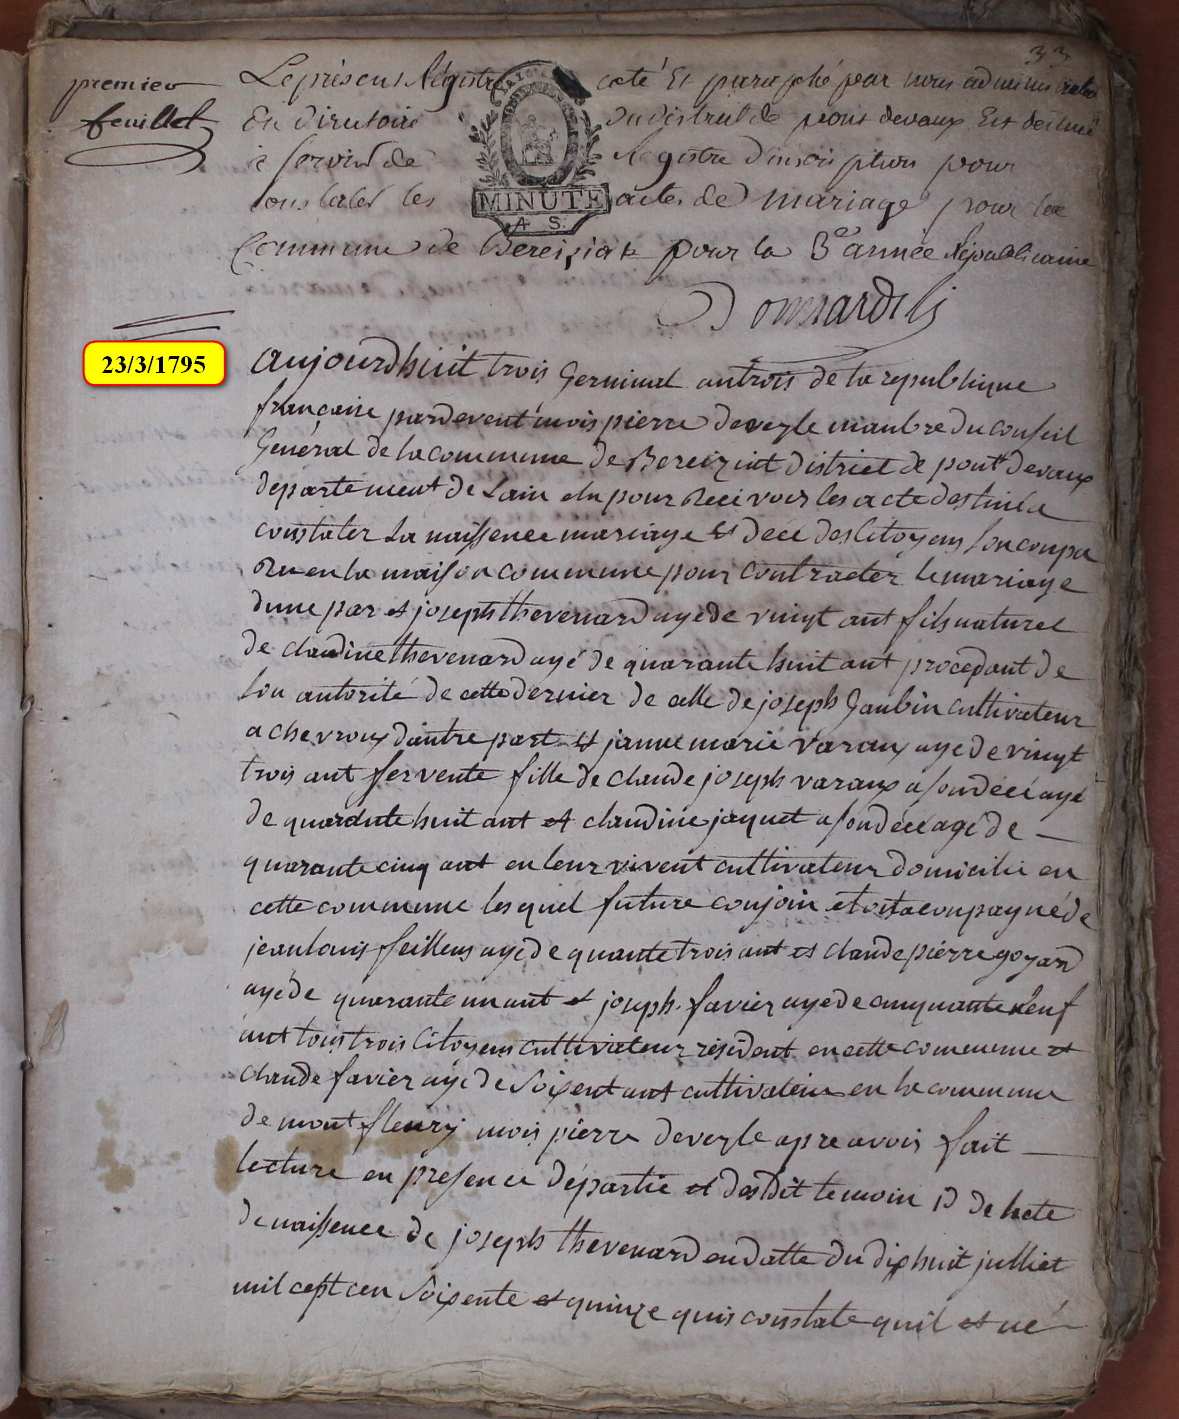 33
premier
feuillet
Le présent Régistre coté Et paraphé par nous administrateur
En directoire du district de pont devaux Est destiné
à servir de Registre d'inscription pour
constater les actes de mariage pour la
Commune de Bereiziat pour la 3e année Républicaine
MINUTE
A. S.
23/3/1795
aujourdhuit trois Germinal an trois de la republique
francaise pardevent mois pierre deveyle manbre du conseil
Général de la commune de Bereizint district de pont devaux
departement de Lain elu pour Recivoir les acte destiné a
constater La naissence mariage et décé des Citoyens
en la maison commune pour contracter le mariage
dune par et joseph thevenard agé de vingt ant fils naturel
de claudine thevenard agé de quarante huit ant procedant de
son autorité de cette dernier de celle de joseph Gaubin cultivateur
a chevroux dautre part et janne marie varaux agé de vingt
trois ant servente fille de claude joseph varaux a son décé agé
de quarante huit ant et claudine jaquet a son décé agé de
quarante cinq ant en leur vivent cultivateur domicilié en
cette commune lesquel future conjoin acoupagné de
jean louis feillens agé de quante trois ant et claude pierre goyard
agé de quarante un ant et joseph favier agé de cinquante neuf
ant tous trois Citoyens cultivateur résident en cette commune et
claude favier agé de Soixent ant cultivateur en la commune
de mont fleury mois pierre deveyle apre avois fait
lecture en presence départie et desdit temoin 1o de lacte
de naissence de joseph thevenard en datte du dix huit julliet
mil cept cen Soixente et quinze quis constate quil et né